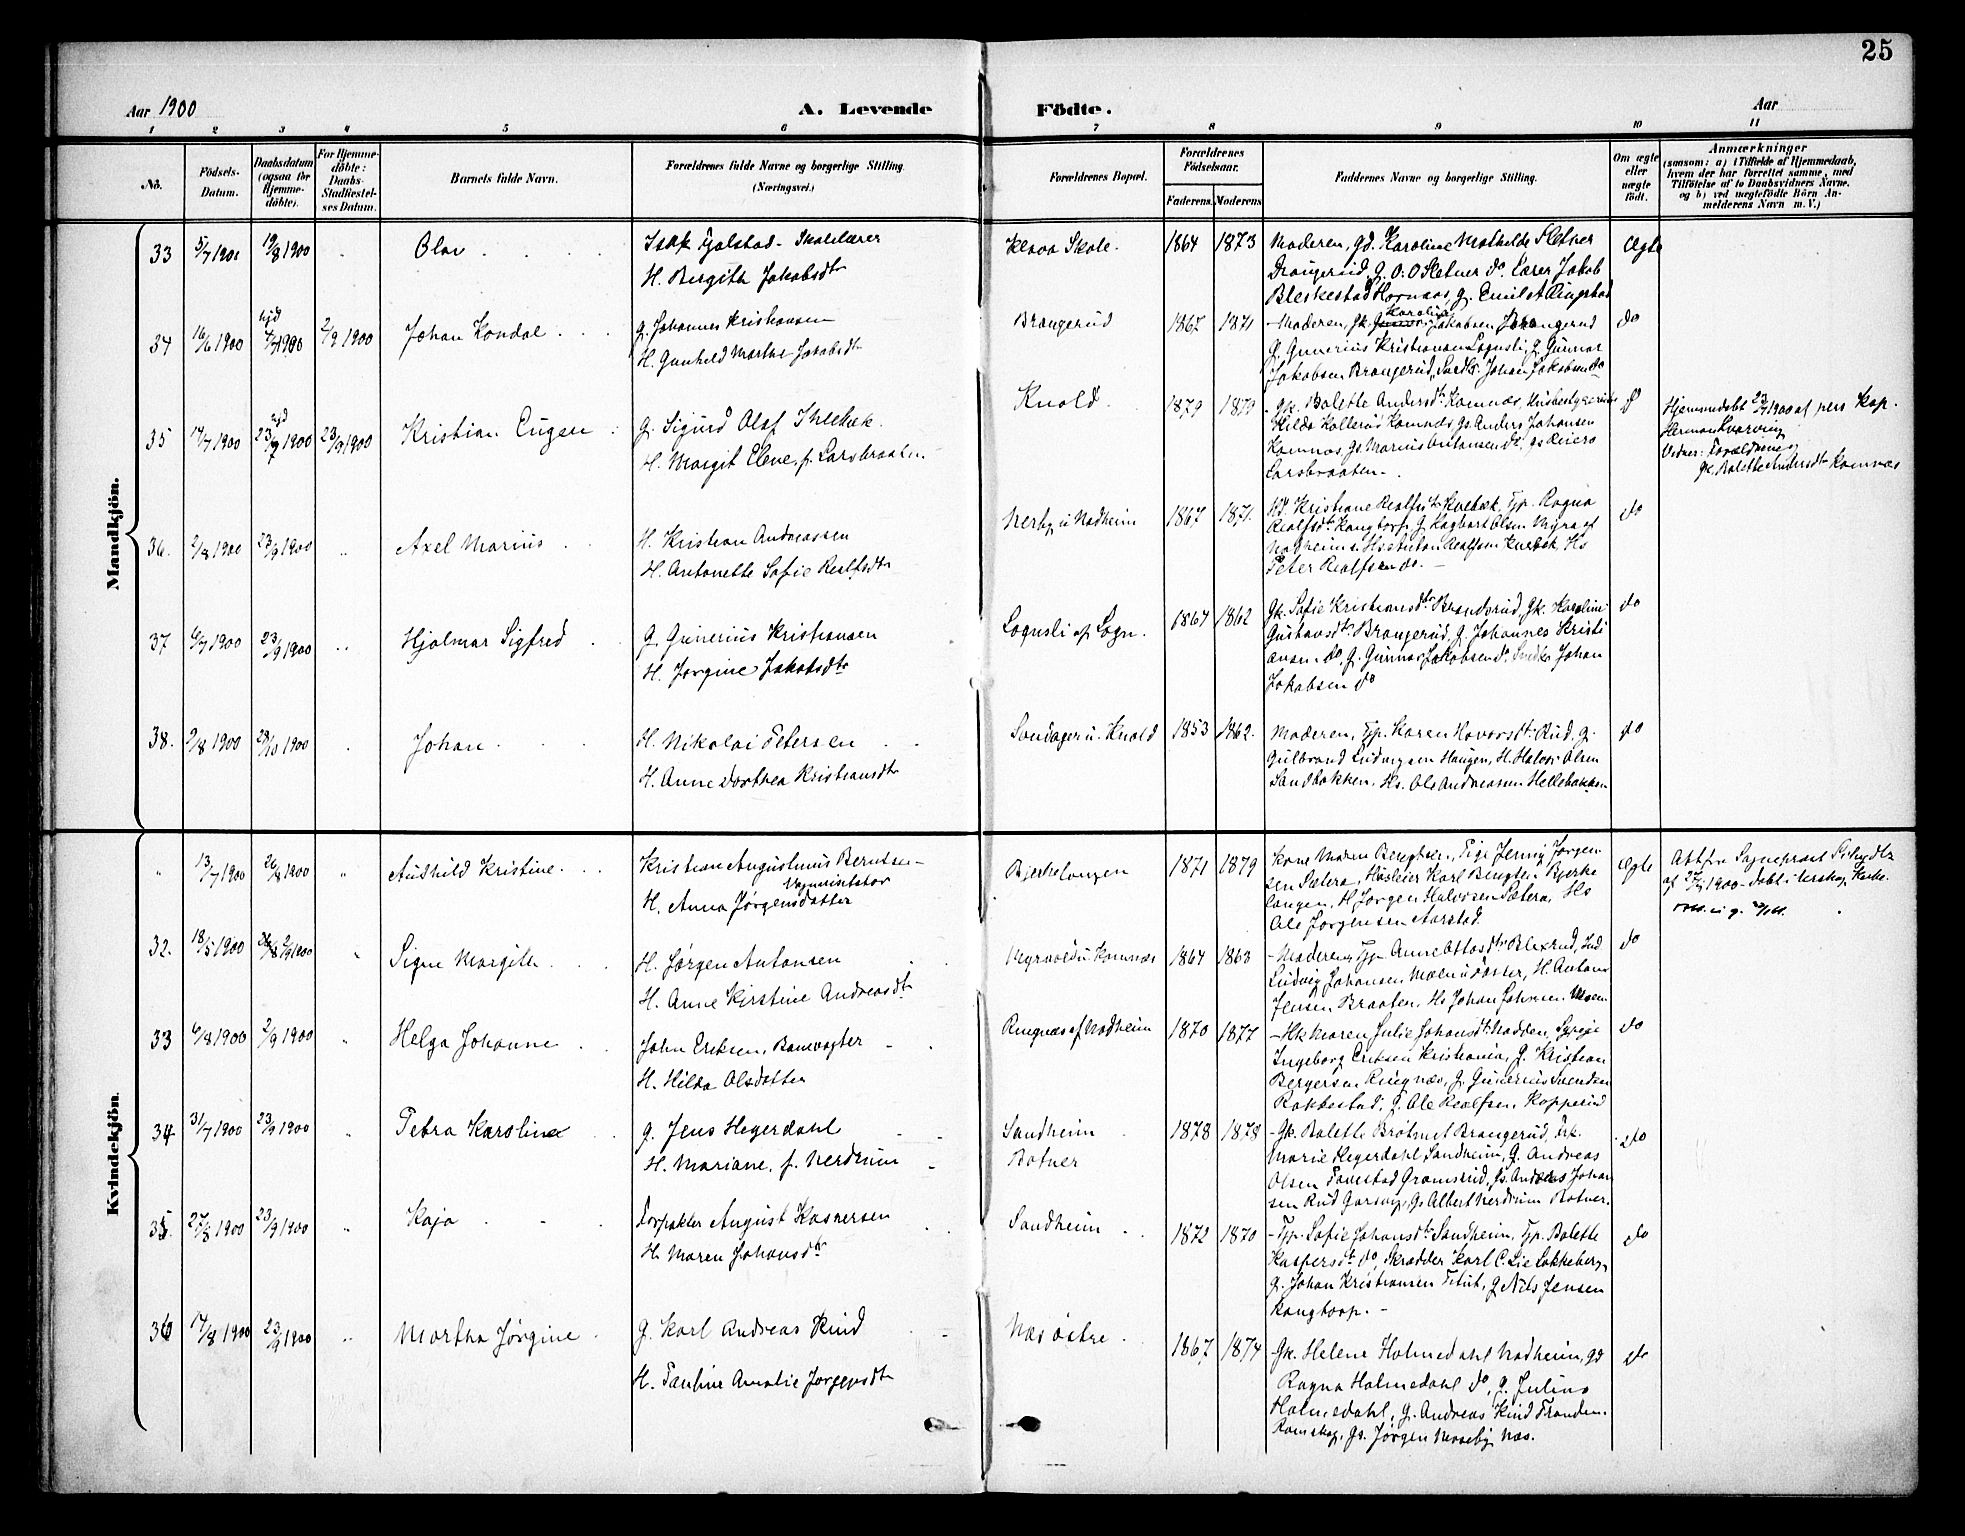 25
Aar 1900
A. Levende
Födte.
Aar
1 2 3 4 5 6 7 8 9 10 11
No.
Födsels-Datum.
Daabsdatum (ogsaa for Hjemme-döbte).
For Hjemme-döbte: Daabs-Stadfæstel-ses Datum.
Barnets fulde Navn.
Forældrenes fulde Navne og borgerlige Stilling. (Næringsvei.)
Forældrenes Bopæl.
Forældrenes Födselsaar.
Faderens. Moderens
Faddernes Navne og borgerlige Stilling.
Om ægte eller uægte födt.
Anmærkninger
(saasom: a) i Tilfælde af Hjemmedaab, hvem der har forrettet samme, med Tilföielse af to Daabsvidners Navne, og b) ved uægtefödte Börn An-melderens Navn m. V.)
Mandkjön.
33 5/7 1900 19/8 1900 Olav
Isak Fjalstad - Skolelærer
H. Bergithe Jakobsdtr
Klova Skole. 1864 1873
Moderen, gd. Karoline Mathilde Sletner
Brangerud, g. O. O Sletner do. Lærer Jakob
Bleskestad Hornnes, g. Emil A Ringstad
Ægte
34 16/6 1900 hjd 1900 2/9 1900 Johan Kondal
g. Johannes Kristiansen
H. Gunhild Marthe Jakobsdtr
Brangerud 1867 1871
Moderen, gk. Karoline Jakobsen Brangerud
g. Gunerius Kristiansen Lognsli, g. Gunnar
Jakobsen Brangerud, Snedkr Johan Jakobsen do
do
35 14/7 1900 hjd 23/7 1900 23/9 1900 Kristian Eugen
g. Sigurd Olaf
H. Margit Elene, f. Larsbraaten
Knold 1879 1879
gk. Bolette Andersdtr Komnæs, Husbestyrerinde
Hilda Kollerød Komnæs, gs. Anders Johansen
Komnæs, gs. Marius Antonsen do, gs
Larsbraaten
do
Hjemmedøbt 23/7 1900 af pens Kap.
Herman Kvarving
Vidner: Forældrene
gk. Bolette Andersdtr Komnæs
36. 2/8 1900 23/9 1900 Axel Marius
H. Kristian Andreassen
H. Antonette Sofie Realfsdtr
Nerby u Nadheim 1867 1871.
Kristiane Realfsdtr Kvebæk, Tjp. Ragna
Realfsdtr Langtorp, g. Hagbart Olsen Myra af
Nadheim, Hs Anton Realfsen Kvebæk, Hs
Peter Realfsen do.
do
37 6/7 1900 23/9 1900 Hjalmar Sigfred
g. Gunerius Kristiansen
H. Jørgine Jakobsdtr
Lognsli af Logn. 1867 1862
gk. Sofie Kristiansdtr Brandsrud, gk. Karoline
Gustavsdtr Brangerud, g. Johannes Kristi
ansen do, g. Gunnar Jakobsen do, Snedkr Johan
Jakobsen do
do
38. 9/8 1900 28/10 1900 Johan
H. Nikolai Petersen
H. Anne Dorthea Kristiansdtr
Sandager u. Knold 1853 1862.
Moderen, Tjp. Karen Havorsdtr Rud, g.
Gulbrand Ludvigsen Haugen, H. Halvor Olsen
Sandbakken, Hs. Ole Andreassen Hellebakken
do
Kvindekjön.
" 13/7 1900 26/8 1900 " Aushild Kristine
Kristian Augustinus Berntsen
Vognvisitator
H. Anna Jørgensdatter
Bjerkelangen 1871 1879
Kone Maren Bengtsen, Pige Jenny Jørgen
sen Sætera, Husleier Karl Bengtsen Bjerke
langen, H. Jørgen Halvorsen Sætera, Hs
Ole Jørgensen Aarstad.
Ægte
Att. fra Sogneprest
af 1900 - døbt i Kirke.
32. 18/5 1900 26/8 2/9 1900 " Signe Margith
H. Jørgen Antonsen
H. Anne Kirstine Andreasdtr
Myrvold u. Komnæs 1864 1863
Moderen, Tjp Anne Ottosdtr Blexrud, Ind
Ludvig Johansen Moen u Foster, H. Anton
Jensen Braaten, Hs Johan Johnsen Moen.
do
33 6/8 1900 2/9 1900 " Helga Johanne
John Eriksen, Banevogter
H. Hilda Olsdatter
Ringnæs af Nadheim 1870 1877
Hk Maren Julie Johansdtr Nadden, Sypige
Ingeborg Eriksen Kristiania, g. Kristian
Bergersen Ringnæs, g. Gunerius Svendsen
Rakkestad, g. Ole Realfsen Kopperud
do
34 31/7 1900 23/9 1900 " Petra Karoline
g. Jens Hegerdahl
H. Mariane, f. Nerdrum
Sandheim
Botner
1878 1878
Gk. Bolette Brøtmet Brangerud, Frk.
Marie Hegerdahl Sandheim, g. Andreas
Olsen Tavestad Gramsrud, gs. Andreas Johan
sen Rud, gs Albert Nerdrum Botner.
do
35. 27/8 1900 23/9 1900 " Kaja
Forpakter August Kaspersen
H. Maren Johansdtr
Sandheim 1872 1870
Tjp. Sofie Johansdtr Sandheim, Tjp. Bolette
Kaspersdtr do, Skrædder Karl C. Lie Løkkeberg,
g. Johan Kristiansen, g Nils Jensen
Langtorp.
do
36 14/8 1900 23/9 1900 " Martha Jørgine
g. Karl Andreas Kind
H. Pauline Amalie Jørgensdtr
Næs østre 1867 1874
Gk. Helene Holmedahl Nadheim, gd
Ragna Holmedahl do, g. Julius
Holmedahl, g. Andreas Kind Tranden.
Romskog, gs. Jørgen Mosseby Næs.
do